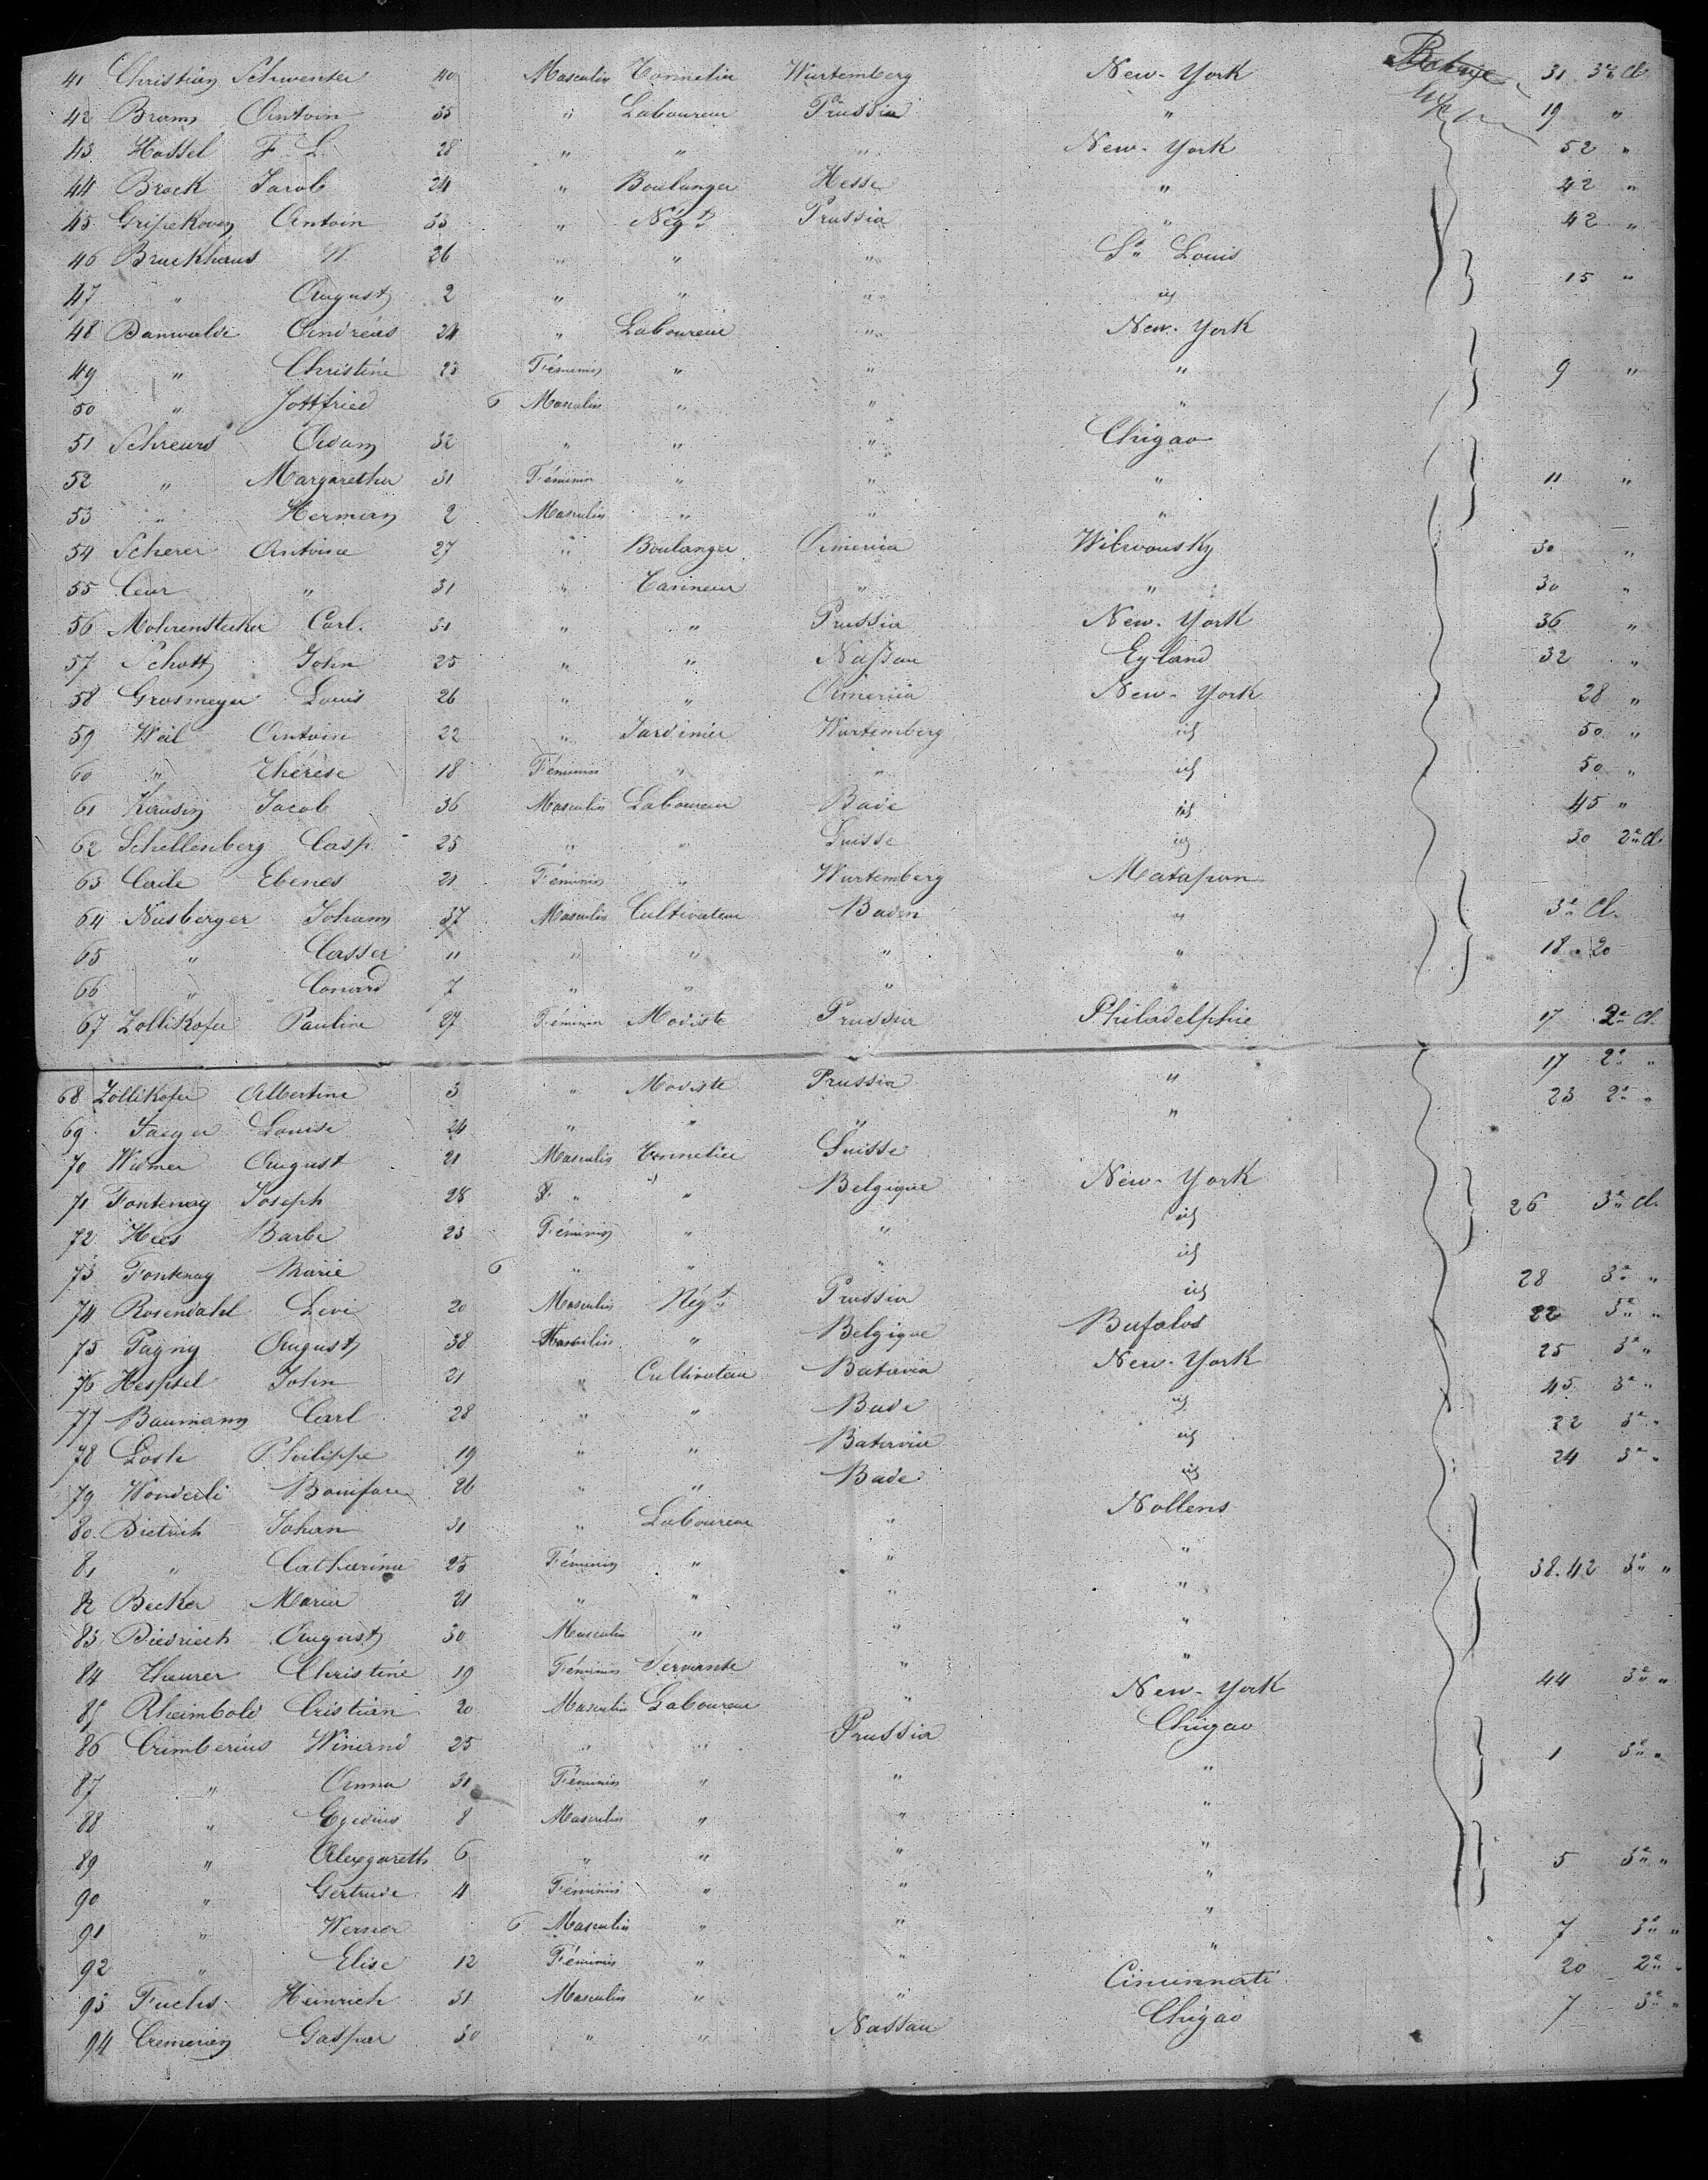 41 Christian Schwenter 40 Masculin Tonnelier Wurtemberg New-York 31 3e Cl
42 Bram Antoin 35 " Laboureur Prussia " 19 "
43 Hassel F. L. 28 " " " New-York 52 "
44 Brock Jacob 24 " Boulanger Hesse " 42 "
45 Gripekoven Antoin 33 " Négt Prussia " 42 "
46 Bruckhaus W 26 " " " St Louis
47 " August 2 " " " id 15 "
48 Banwalde Andréas 24 " Laboureur " New-York
49 " Christine 23 Féminin " " " 9 "
50 " Gottfried 6 Masculin " " "
51 Schreurs Adam 32 " " " Chigao
52 " Margaretha 31 Féminin " " " 11 "
53 " Herman 2 Masculin " " "
54 Scherer Antoine 27 " Boulanger America Wilwousky 30 "
55 Ceur " 31 " Tanneur " " 30 "
56 Mohrenstecher Carl. 31 " " Prussia New-York 36 "
57 Schott John 25 " " Nassau Eyland 32 "
58 Grosmeyer Louis 26 " " America New-York 28 "
59 Weil Antoin 22 " Jardinier Wurtemberg id 50 "
60 " Thérèse 18 Féminin " " id 50 "
61 Krausin Jacob 36 Masculin Laboureur Bade id 45 "
62 Schellenberg Casp 25 " " Suisse id 30 2e Cl.
63 Caile Ebenes 21 Féminin " Wurtemberg Matapun
64 Nusberger Johann 37 Masculin Cultivateur Baden " 3e Cl.
65 " Casser 11 " " " " 18. 20
66 " Conard 7 " " " "
67 Zollikofer Pauline 27 Féminin Modiste Prussia Philadelphie 17 2e Cl.
68 Zollikofer Albertine 3 " Modiste Prussia " 17 2e "
69 Jaeger Louise 24 " " " " 23 2e "
70 Widmer August 21 Masculin Tonnelier Suisse
71 Fontenay Joseph 28 " " Belgique New-York
72 Hees Barbe 23 Féminin " " id 26 3e Cl.
73 Fontenay Marie 6 " " " id
74 Rosendahl Levi 20 Masculin Négt Prussia id 28 3e "
75 Pagny August 38 Masculin " Belgique Bufalos 22 3e "
76 Hesptel John 21 " Cultivateur Batavia New-York 25 3e "
77 Baumann Carl 28 " " Bade id 45 3e "
78 Losh Philippe 19 " " Batavia id 22 3e "
79 Wonderli Boniface 26 " " Bade id 24 3e "
80 Dietrich Johan 31 " Laboureur " Nollens
81 " Catharina 25 Féminin " " " 38.42 3e "
82 Becker Maria 21 " " " "
83 Diedriech August 30 Masculin " " "
84 Haurer Christine 19 Féminin Servante " "
85 Rheimbold Cristian 20 Masculin Laboureur " New-York 44 3e "
86 Crimberius Winand 25 " " Prussia Chigao
87 " Anna 31 Féminin " " " 1 3e "
88 " Egedius 8 Masculin " " "
89 " 6 " " " "
90 " Gertrude 4 Féminin " " " 5 3e "
91 " Werner 6 Masculin " " "
92 " Elise 12 Féminin " " " 7 3e "
93 Fuchs Heinrich 31 Masculin " " Cincinnati 20 2e "
94 Cremerien Gaspar 30 " " Nassau Chigao 7 3e "